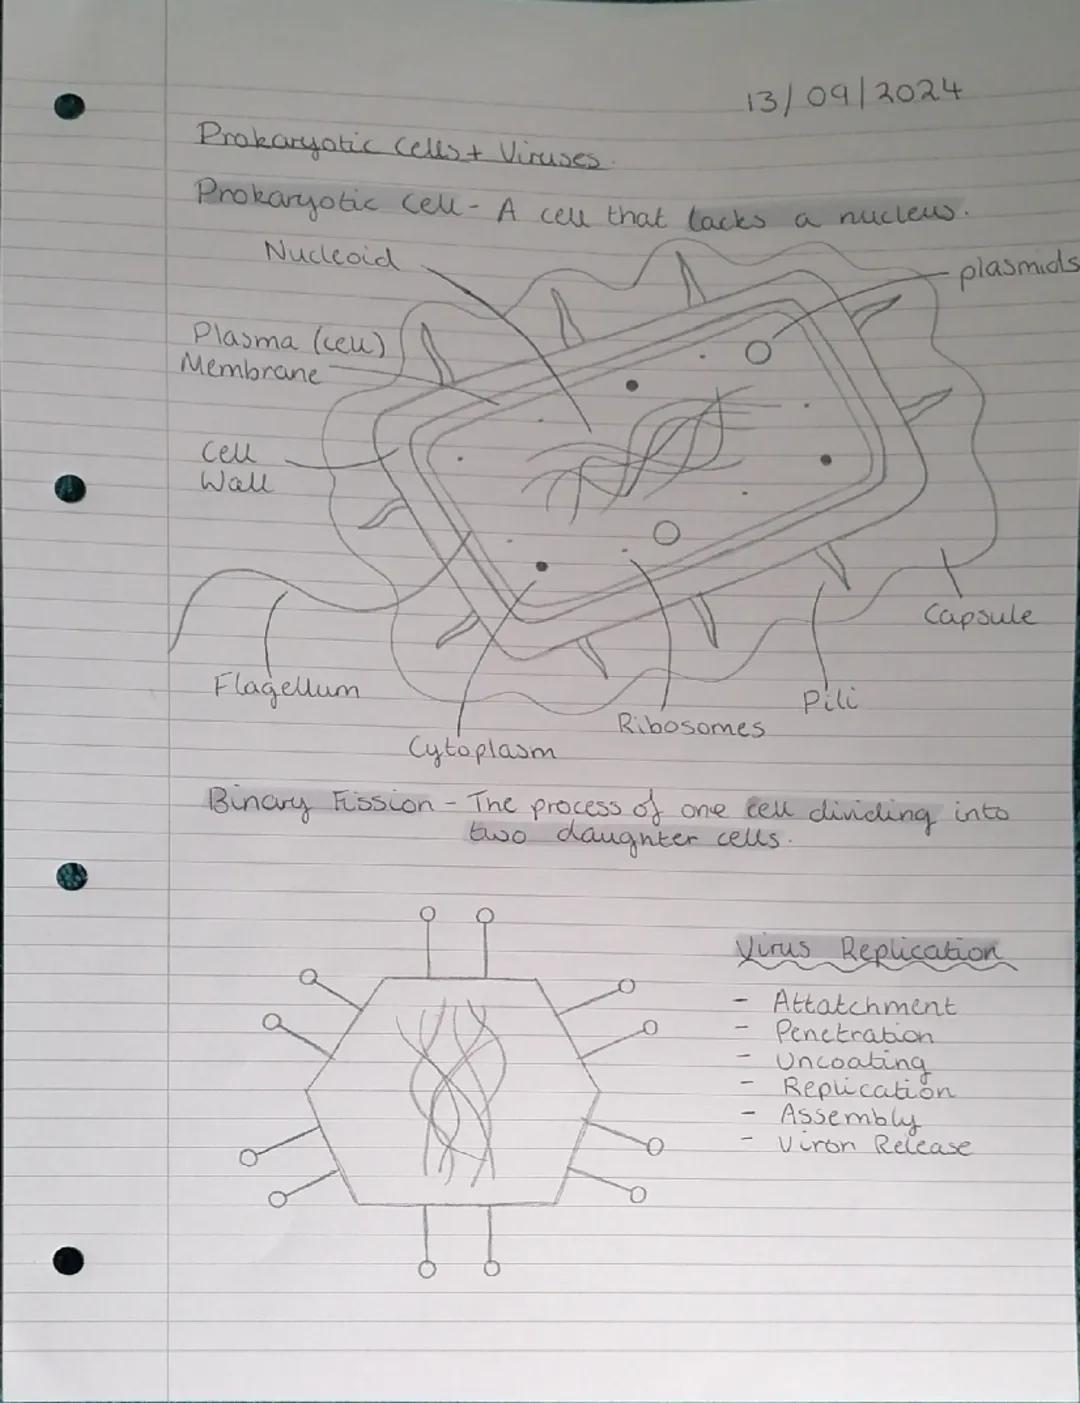 13/09/2024
Prokaryotic Cells + Viruses.
Prokaryotic Cell - A cell that lacks a nucleus.
Nucleoid
plasmids
Plasma (cell)
Membrane
Cell
Wall
Capsule
Flagellum
Pili
Ribosomes
Cytoplasm
Binary Fission - The process of one cell dividing into
two daughter cells.
Virus Replication
- Attatchment
- Penetration
- Uncoating
- Replication
- Assembly
- Viron Release